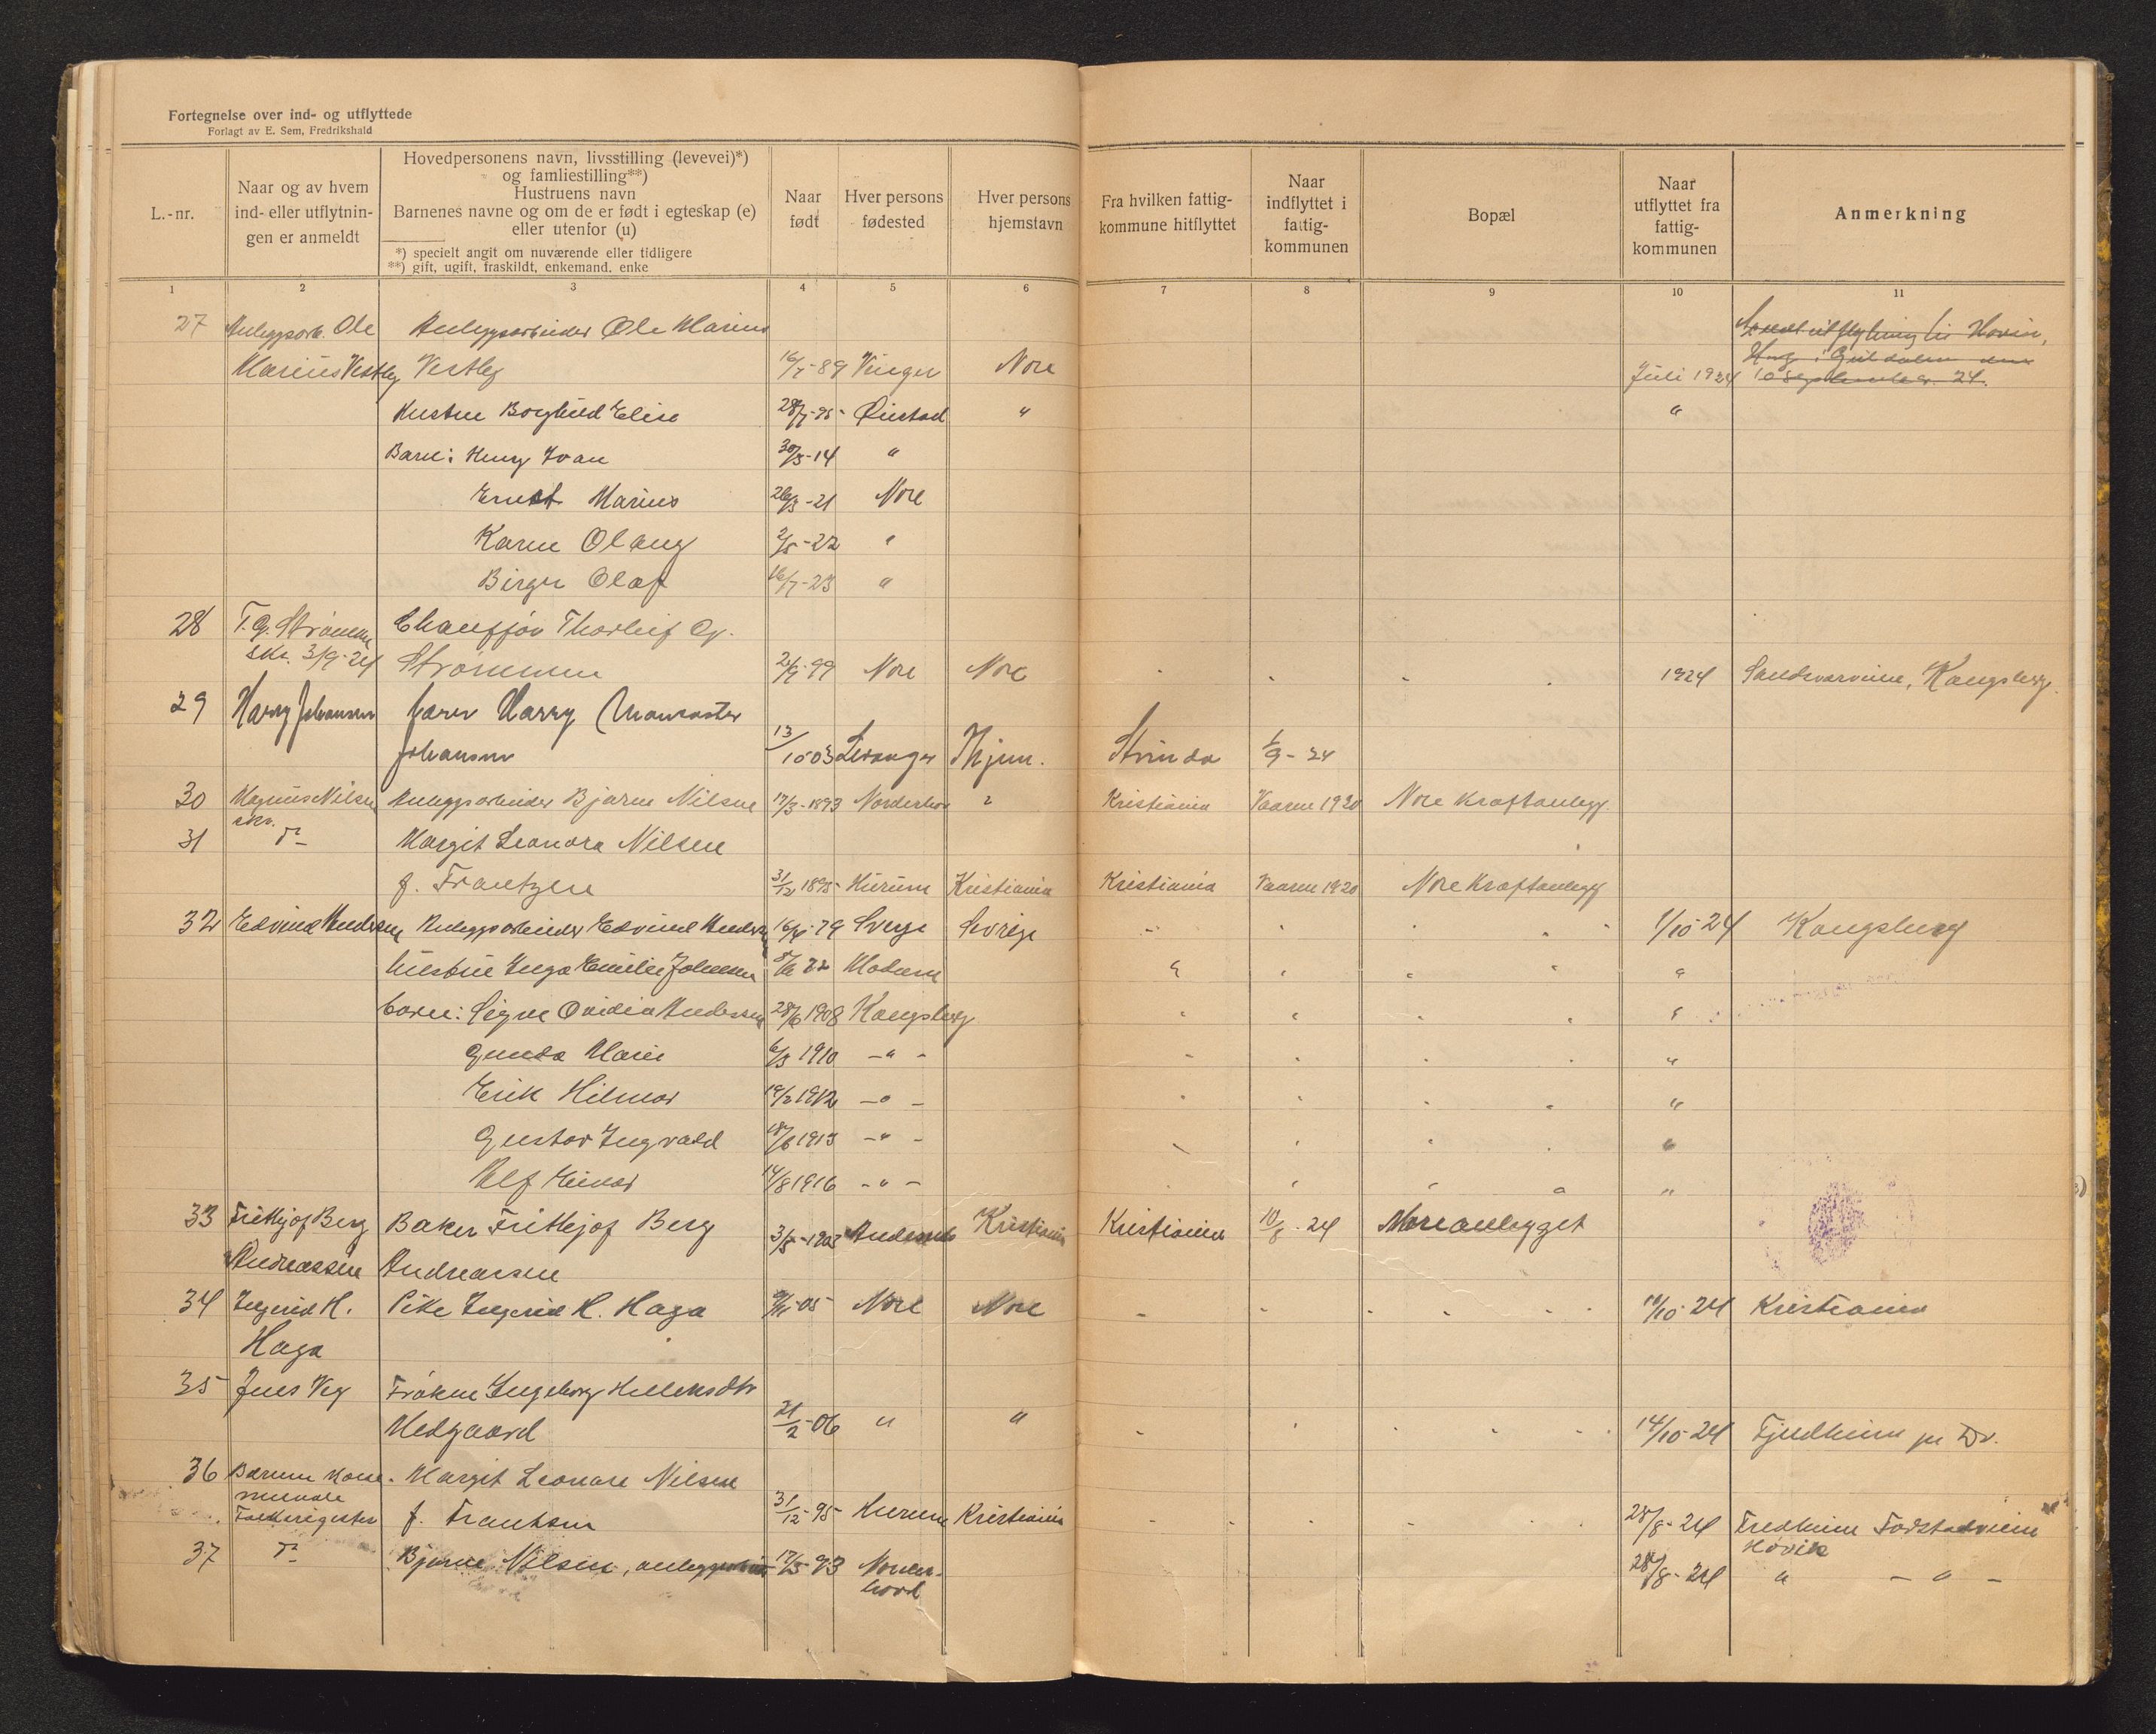 Fortegnelse over ind- og utflyttede
Forlagt av E. Sem, Fredrikshald
L.-nr.
Naar og av hvem
ind- eller utflytnin-
gen er anmeldt
Hovedpersonens navn, livsstilling (levevei)*)
og famliestilling**)
Hustruens navn
Barnenes navne og om de er født i egteskap (e)
eller utenfor (u)
*) specielt angit om nuværende eller tidligere
**) gift, ugift, fraskildt, enkemand, enke
Naar
født
Hver persons
fødested
Hver persons
hjemstavn
Fra hvilken fattig-
kommune hitflyttet
Naar
indflyttet i
fattig-
kommunen
Bopæl
Naar
utflyttet fra
fattig-
kommunen
Anmerkning
1 2 3 4 5 6 7 8 9 10 11
27 Anleggsarb. Ole Anleggsarbeider Ole Marius utflytning til Hovin,
Marius Vestby Vestby 16/7-89 Vinger Nore Juli 1924 10 September 24.
Hustru Borghild Elise 28/7-95 Øiestad " "
Barn: Henry Ivan 30/3-14 "
Ernst Marius 26/3-21 Nore
Karen Olaug 2/5-22 "
Birger Olaf 16/7-23 "
28 T. G. Strømmen Chauffør Thorleif G.
skr. 3/9-24 Strømmen 2/9-99 Nore Nore 1924 Sandsværveien, Kongsberg.
29 Harry Johansen Harry
Johansen 13/10-03 Levanger Thjem. Strinda 1/9-24
30 Magnus Nilsen Anleggsarbeider Bjarne Nilsen 17/3-1893 Norderhov " Kristiania Vaaren 1920 Nore Kraftanlegg
skr.
31 Do Margit Leonora Nilsen
f. Frantzen 31/12 1895 Hurum Kristiania Kristiania Vaaren 1920 Nore Kraftanlegg
32 Edvind Andersen Anleggsarbeider Edvind Andersen 16/4-79 Sverge Sverige 1/10-24 Kongsberg
Hustru Inga Emilie Johansen 82 Modum "
Barn: Signe Ovidia Andersen 28/6 1908 Kongsberg "
Gunda Marie 6/3 1910 - " - "
Erik Hilmar 19/2 1912 - " - "
Gustav Ingvald 18/6 1913 - " - "
Alf Einar 14/8 1916 - " - "
33 Frithjof Berg Baker Frithjof Berg 3/5-1903 Kristiania Kristiania 10/8-24 Noreanlegget
Andreassen Andreassen
34 Ingerid H. Pike Ingerid H. Haga 9/11-05 Nore Nore 10/10-24 Kristiania
Haga
35 Jens Veg Frøken Ingeborg Halleksdtr
Hedgaard 21/2-06 " " 14/10-24 Fjeldheim pr Dr.
36 Bærum kom- Margit Leonore Nilsen
munale
Folkeregister f. Frantsen 31/12-95 Hurum Kristiania 28/8-24 Fredheim Fodstadveien
Høvik
37 Do Bjarne Nilsen, anleggsarbeider 17/3-93 Norder- 28/8-24 " - " -
hovd